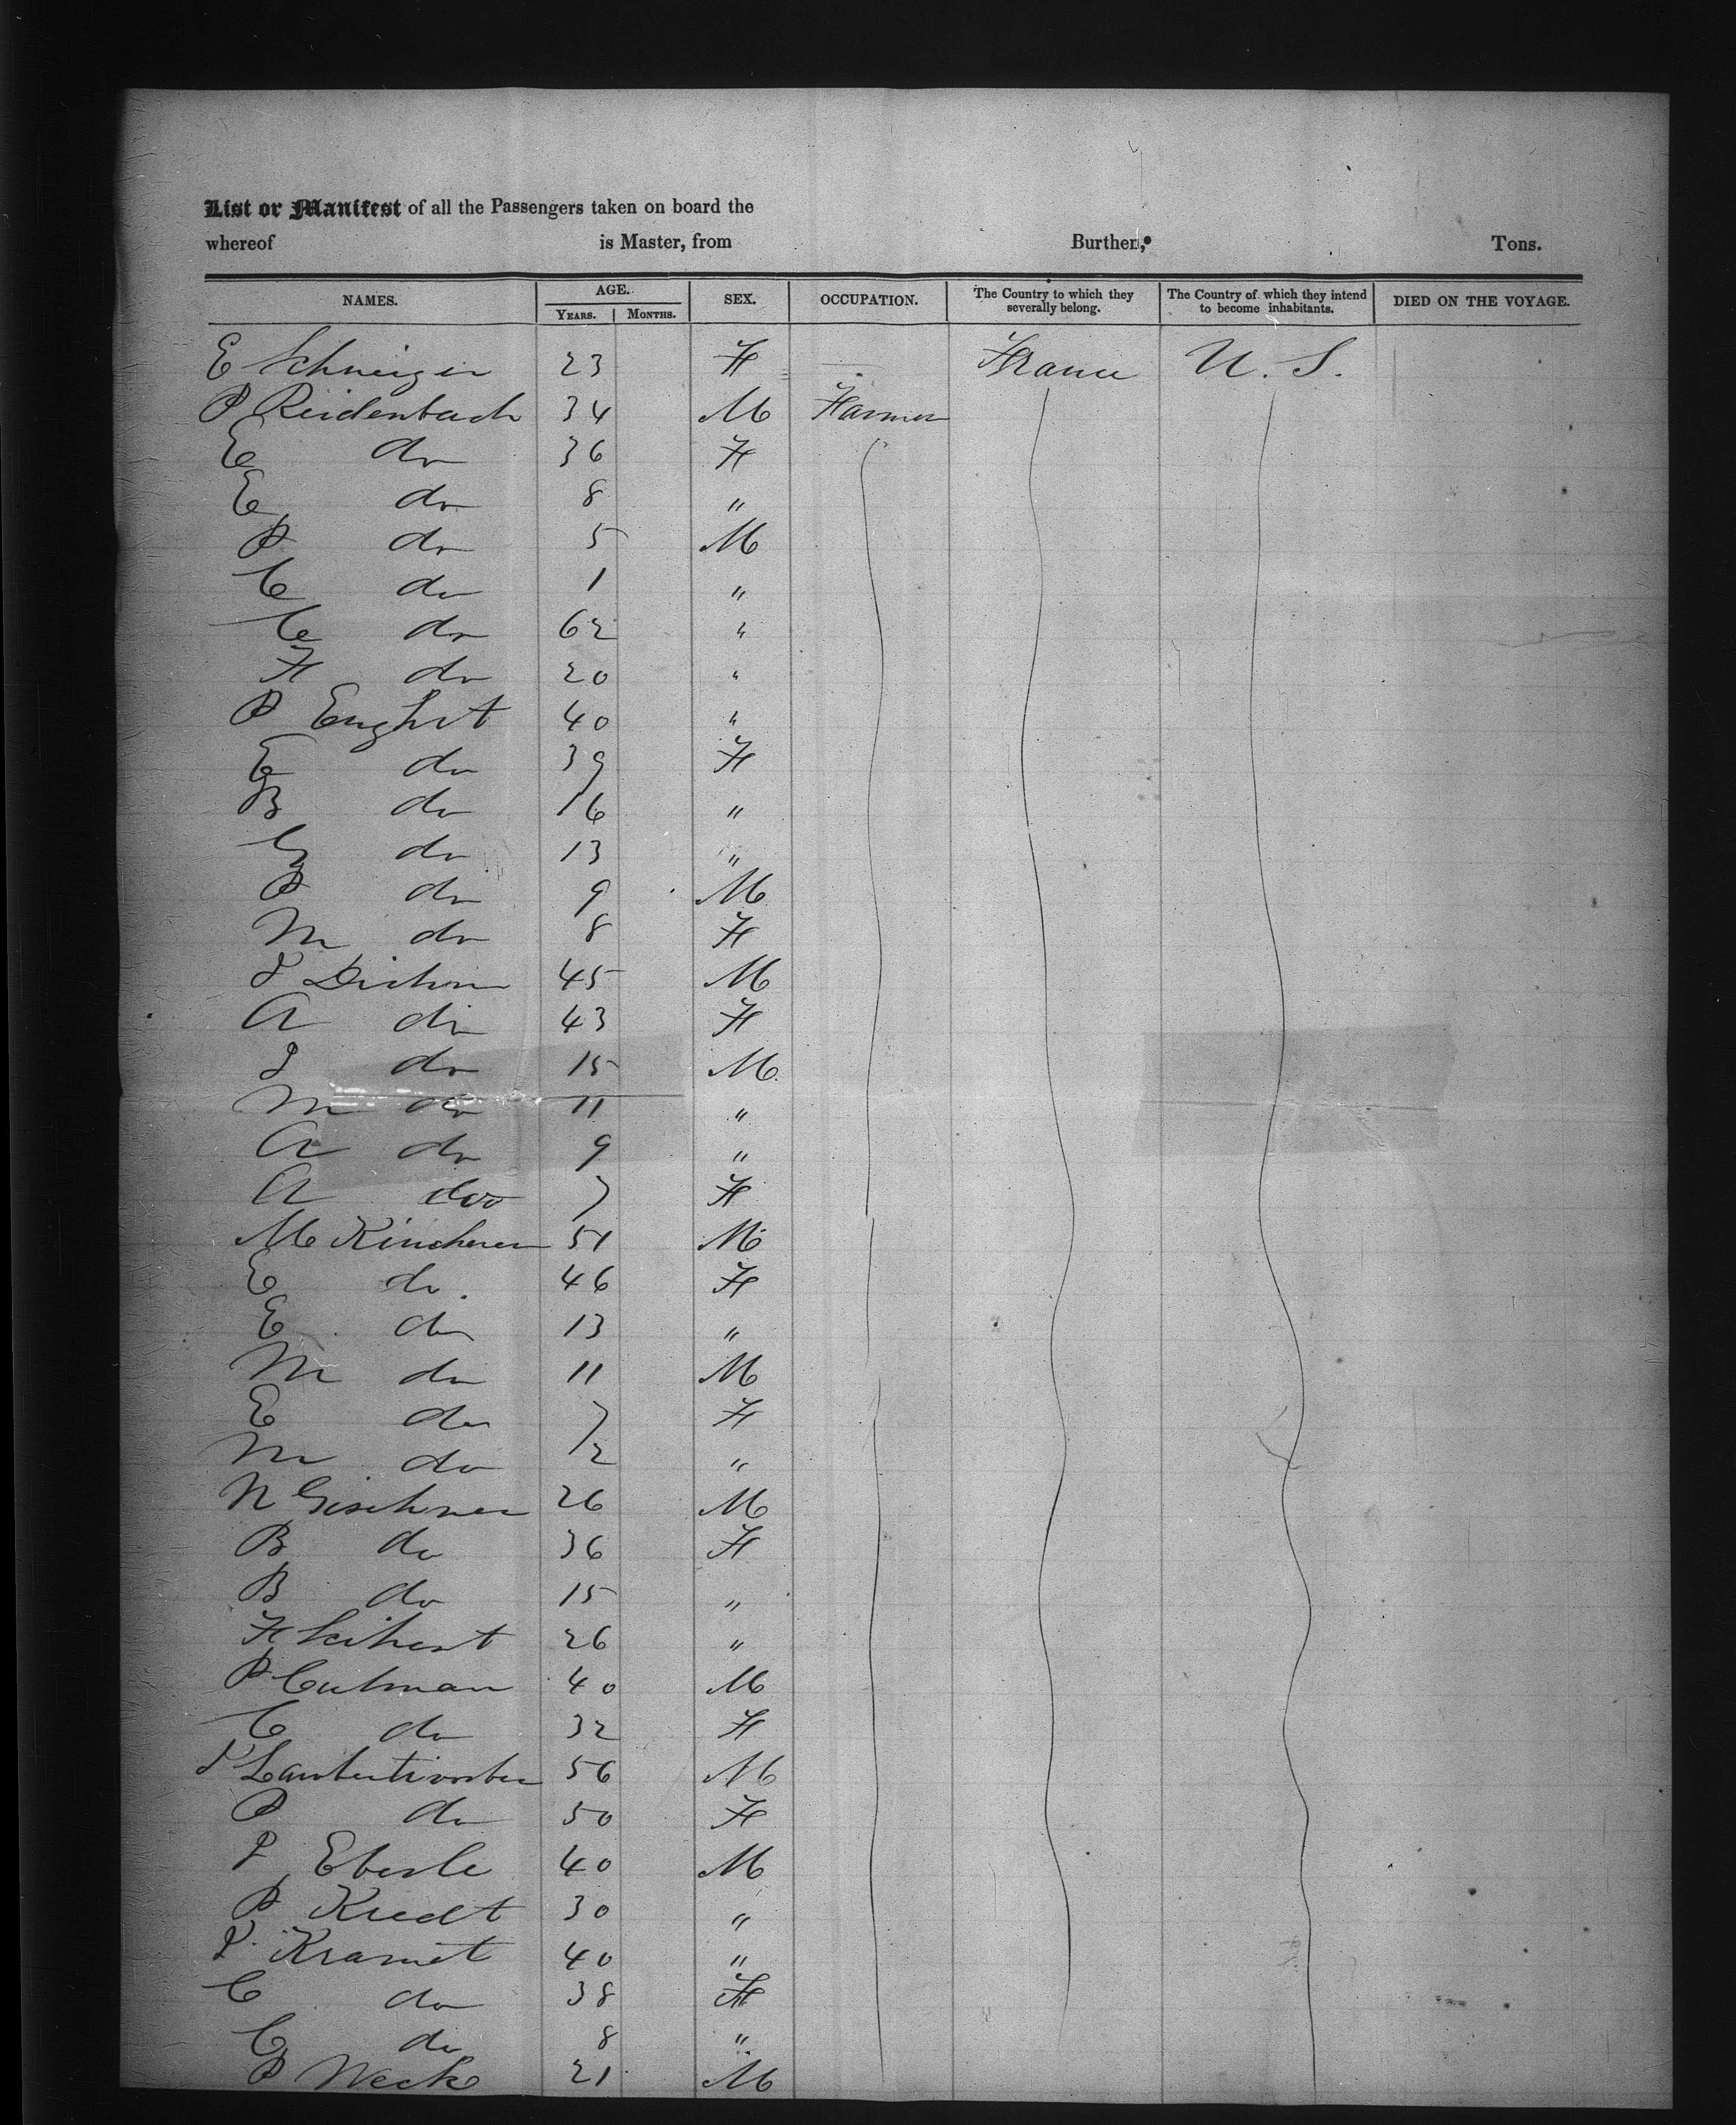 List or Manifest of all the Passengers taken on board the
whereof is Master, from Burthen, Tons.
NAMES. AGE. YEARS. MONTHS. SEX. OCCUPATION. The Country to which they severally belong. The Country of which they intend to become inhabitants. DIED ON THE VOYAGE.
E Schweizer 23 F — France U. S.
P Reidenbach 34 M Farmer
E do 36 F
E do 8 "
P do 5 M
C do 1 "
C do 62 "
F do 20 "
P Enghit 40 "
E do 39 F
B do 16 "
G do 13 "
P do 9 M
M do 8 F
45 M
A do 43 F
J do 15 M
M do 11 "
A do 9 "
A do 7 F
M Kirchner 51 M
E do. 46 F
E do 13 "
M do 11 M
E do 7 F
M do 1/2 "
N Gischner 26 M
B do 36 F
B do 15 "
F 26 "
P Culman 40 M
C do 32 F
56 M
P do 50 F
P Eberle 40 M
P Kredt 30 "
P Kramet 40 "
C do 38 F
C do 8 "
P Weck 21 M